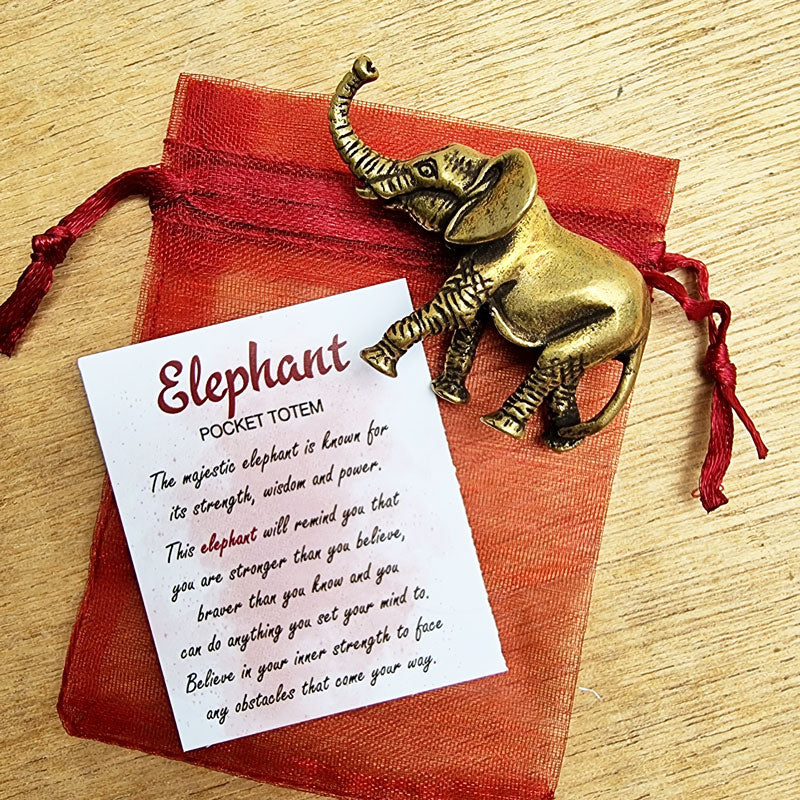 Elephant
POCKET TOTEM
The majestic elephant is known for
its strength, wisdom and power.
This elephant will remind you that
you are stronger than you believe,
braver than you know and you
can do anything you set your mind to.
Believe in your inner strength to face
any obstacles that come your way.